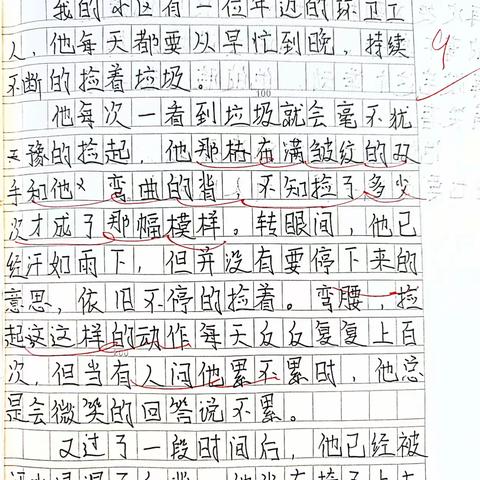 我的小区有一位年迈的环卫工
人，他每天都要从早忙到晚，持续
不断的捡着垃圾。
100
他每次一看到垃圾就会毫不犹
豫的捡起，他那布满皱纹的双
手和他 弯曲的背，不知捡了多少
次才成了那幅模样。转眼间，他已
经汗如雨下，但并没有要停下来的
意思，依旧不停的捡着。弯腰，捡
起这这样的动作每天反反复复上百
200
次，但当有人问他累不累时，他总
是会微笑的回答说不累。
又过了一段时间后，他已经被